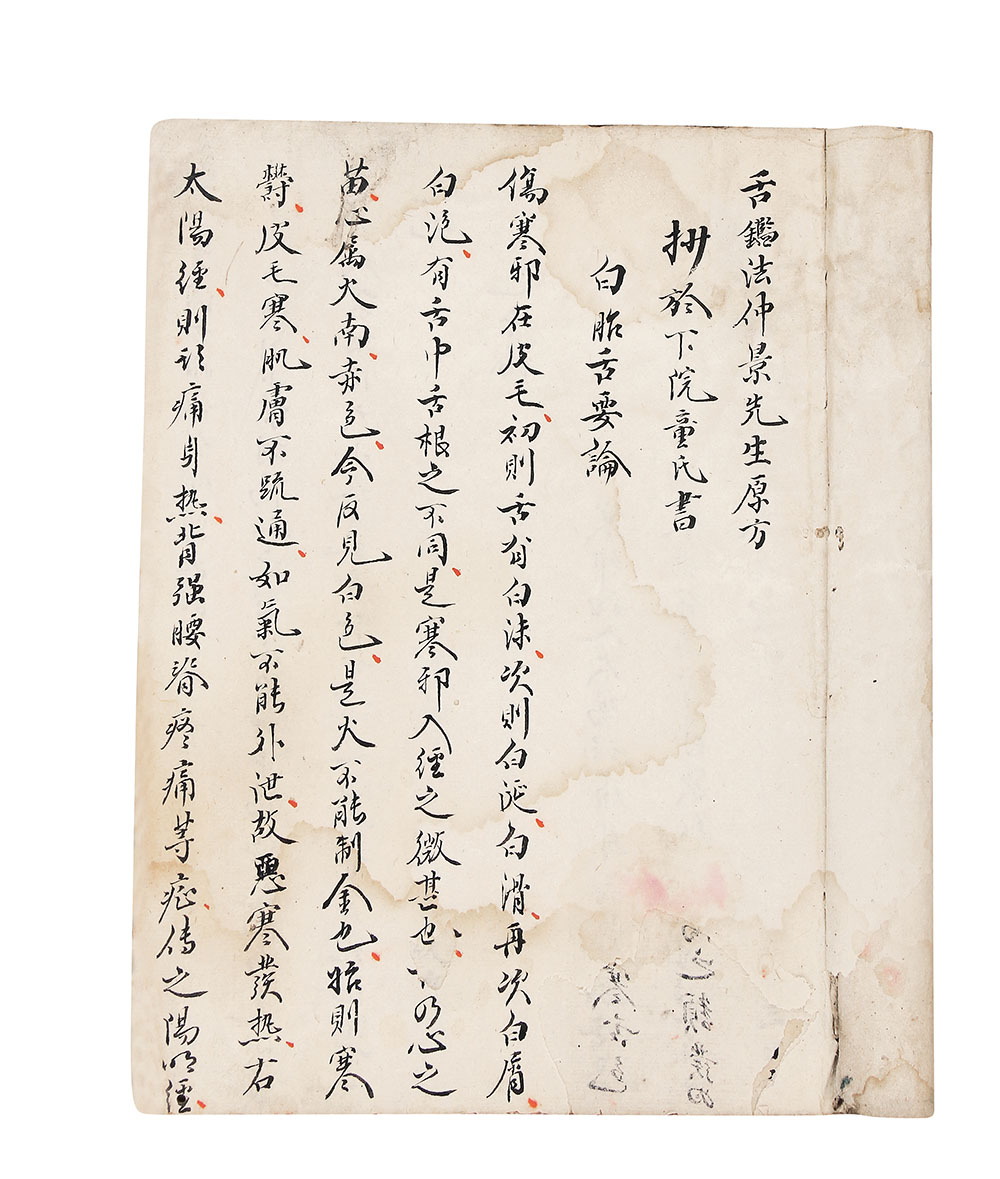 舌鑑法仲景先生原方
抄於下院童氏書
白胎舌要論
傷寒邪在皮毛初則舌有白沫次則白涎白滑再次白屑
白滬有舌中舌根之不同是寒邪入徑之微甚也乃心之
苗心属火南赤色今反見白色是火不能制金也始則寒
欝皮毛寒肌膚不疏通如氣不能外泄故惡寒發热右
太陽徑則頭痛身热背强腰脊疼痛等症传之陽明徑